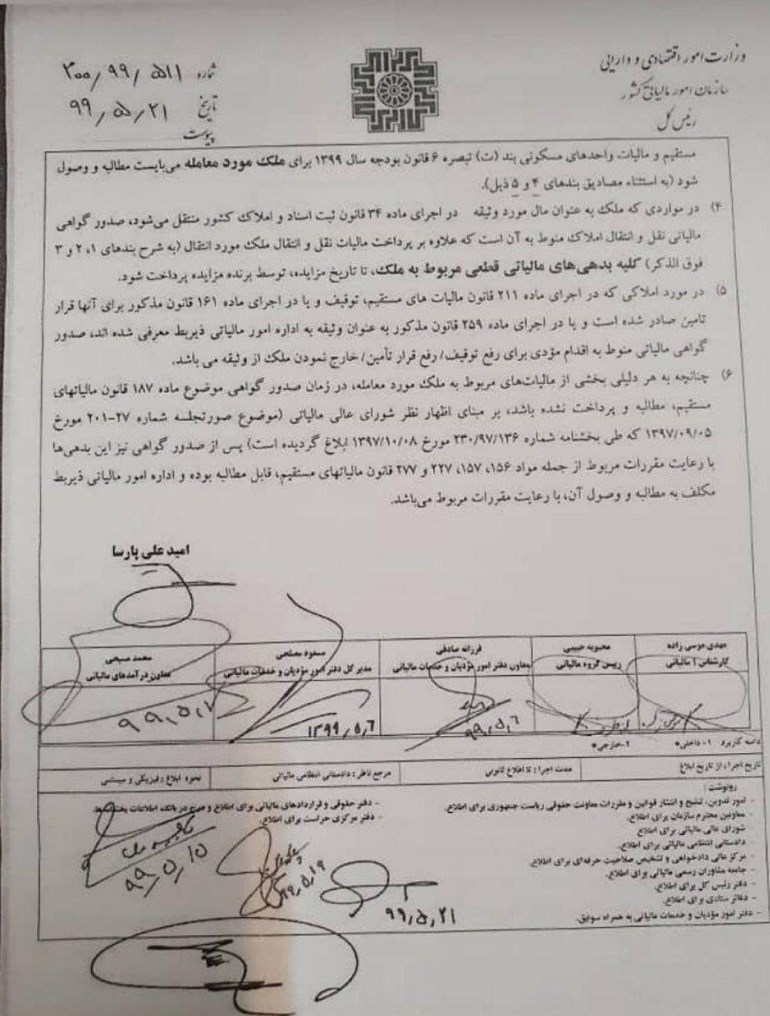 وزارت امور اقتصادی و دارایی
سازمان امور مالیاتی کشور
رئیس کل
شماره ۲۰۰/۹۹/۵۱۱
تاریخ ۹۹/۵/۲۱
پیوست
مستقیم و مالیات واحدهای مسکونی بند (ت) تبصره ۶ قانون بودجه سال ۱۳۹۹ برای ملک مورد معامله می‌بایست مطالبه و وصول
شود (به استثناء مصادیق بندهای ۴ و ۵ ذیل).
۴) در مواردی که ملک به عنوان مال مورد وثیقه در اجرای ماده ۳۴ قانون ثبت اسناد و املاک کشور منتقل می‌شود، صدور گواهی
مالیاتی نقل و انتقال املاک منوط به آن است که علاوه بر پرداخت مالیات نقل و انتقال ملک مورد انتقال (به شرح بندهای ۱، ۲ و ۳
فوق الذکر) کلیه بدهی‌های مالیاتی قطعی مربوط به ملک، تا تاریخ مزایده، توسط برنده مزایده پرداخت شود.
۵) در مورد املاکی که در اجرای ماده ۲۱۱ قانون مالیات های مستقیم، توقیف و یا در اجرای ماده ۱۶۱ قانون مذکور برای آنها قرار
تامین صادر شده است و یا در اجرای ماده ۲۵۹ قانون مذکور به عنوان وثیقه به اداره امور مالیاتی ذیربط معرفی شده اند، صدور
گواهی مالیاتی منوط به اقدام مؤدی برای رفع توقیف/ رفع قرار تأمین/ خارج نمودن ملک از وثیقه می باشد.
۶) چنانچه به هر دلیلی بخشی از مالیات‌های مربوط به ملک مورد معامله، در زمان صدور گواهی موضوع ماده ۱۸۷ قانون مالیاتهای
مستقیم، مطالبه و پرداخت نشده باشد، بر مبنای اظهار نظر شورای عالی مالیاتی (موضوع صورتجلسه شماره ۲۷-۲۰۱ مورخ
۱۳۹۷/۰۹/۰۵ که طی بخشنامه شماره ۲۳۰/۹۷/۱۳۶ مورخ ۱۳۹۷/۱۰/۰۸ ابلاغ گردیده است) پس از صدور گواهی نیز این بدهی‌ها
با رعایت مقررات مربوط از جمله مواد ۱۵۶، ۱۵۷، ۲۲۷ و ۲۷۷ قانون مالیاتهای مستقیم، قابل مطالبه بوده و اداره امور مالیاتی ذیربط
مکلف به مطالبه و وصول آن، با رعایت مقررات مربوط می‌باشد.
امید علی پارسا
مهدی موسی زاده
کارشناس مالیاتی
محبوبه حبیبی
رییس گروه مالیاتی
فرزانه صادقی
معاون دفتر امور مؤدیان و خدمات مالیاتی
مسعود مصلحی
مدیر کل دفتر امور مؤدیان و خدمات مالیاتی
محمد مسیحی
معاون درآمدهای مالیاتی
۹۹/۵/۶
۱۳۹۹/۵/۶
۹۹/۵/۷
دامنه کاربرد ۱- داخلی* ۲-خارجی*
تاریخ اجرا: از تاریخ ابلاغ
مدت اجرا: تا اطلاع ثانوی
مرجع ناظر: دادستانی انتظامی مالیاتی
نحوه ابلاغ: فیزیکی و سیستمی
رونوشت:
- امور تدوین، تنقیح و انتشار قوانین و مقررات معاونت حقوقی ریاست جمهوری برای اطلاع.
- معاونین محترم سازمان برای اطلاع.
- شورای عالی مالیاتی برای اطلاع
- دادستانی انتظامی مالیاتی برای اطلاع.
- مرکز عالی دادخواهی و تشخیص صلاحیت حرفه‌ای برای اطلاع.
- جامعه مشاوران رسمی مالیاتی برای اطلاع.
- دفتر رئیس کل برای اطلاع.
- دفاتر ستادی برای اطلاع.
- دفتر امور مؤدیان و خدمات مالیاتی به همراه سوابق.
- دفتر حقوقی و قراردادهای مالیاتی برای اطلاع و درج در بانک اطلاعات
- دفتر مرکزی حراست برای اطلاع.
۹۹/۵/۱۵
۹۹/۵/۱۹
۹۹/۵/۲۱